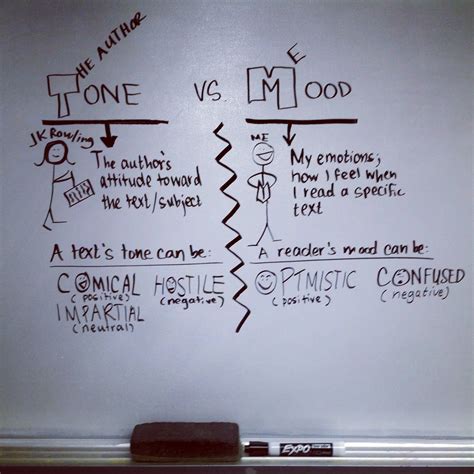 THE AUTHOR
TONE
VS.
ME
MOOD
JK Rowling
The author's
attitude toward
the text/subject
ME
M
My emotions;
how I feel when
I read a specific
text
A text's tone can be:
COMICAL
(positive)
HOSTILE
(negative)
IMPARTIAL
(neutral)
A reader's mood can be:
OPTMISTIC
(positive)
CONFUSED
(negative)
EXPO